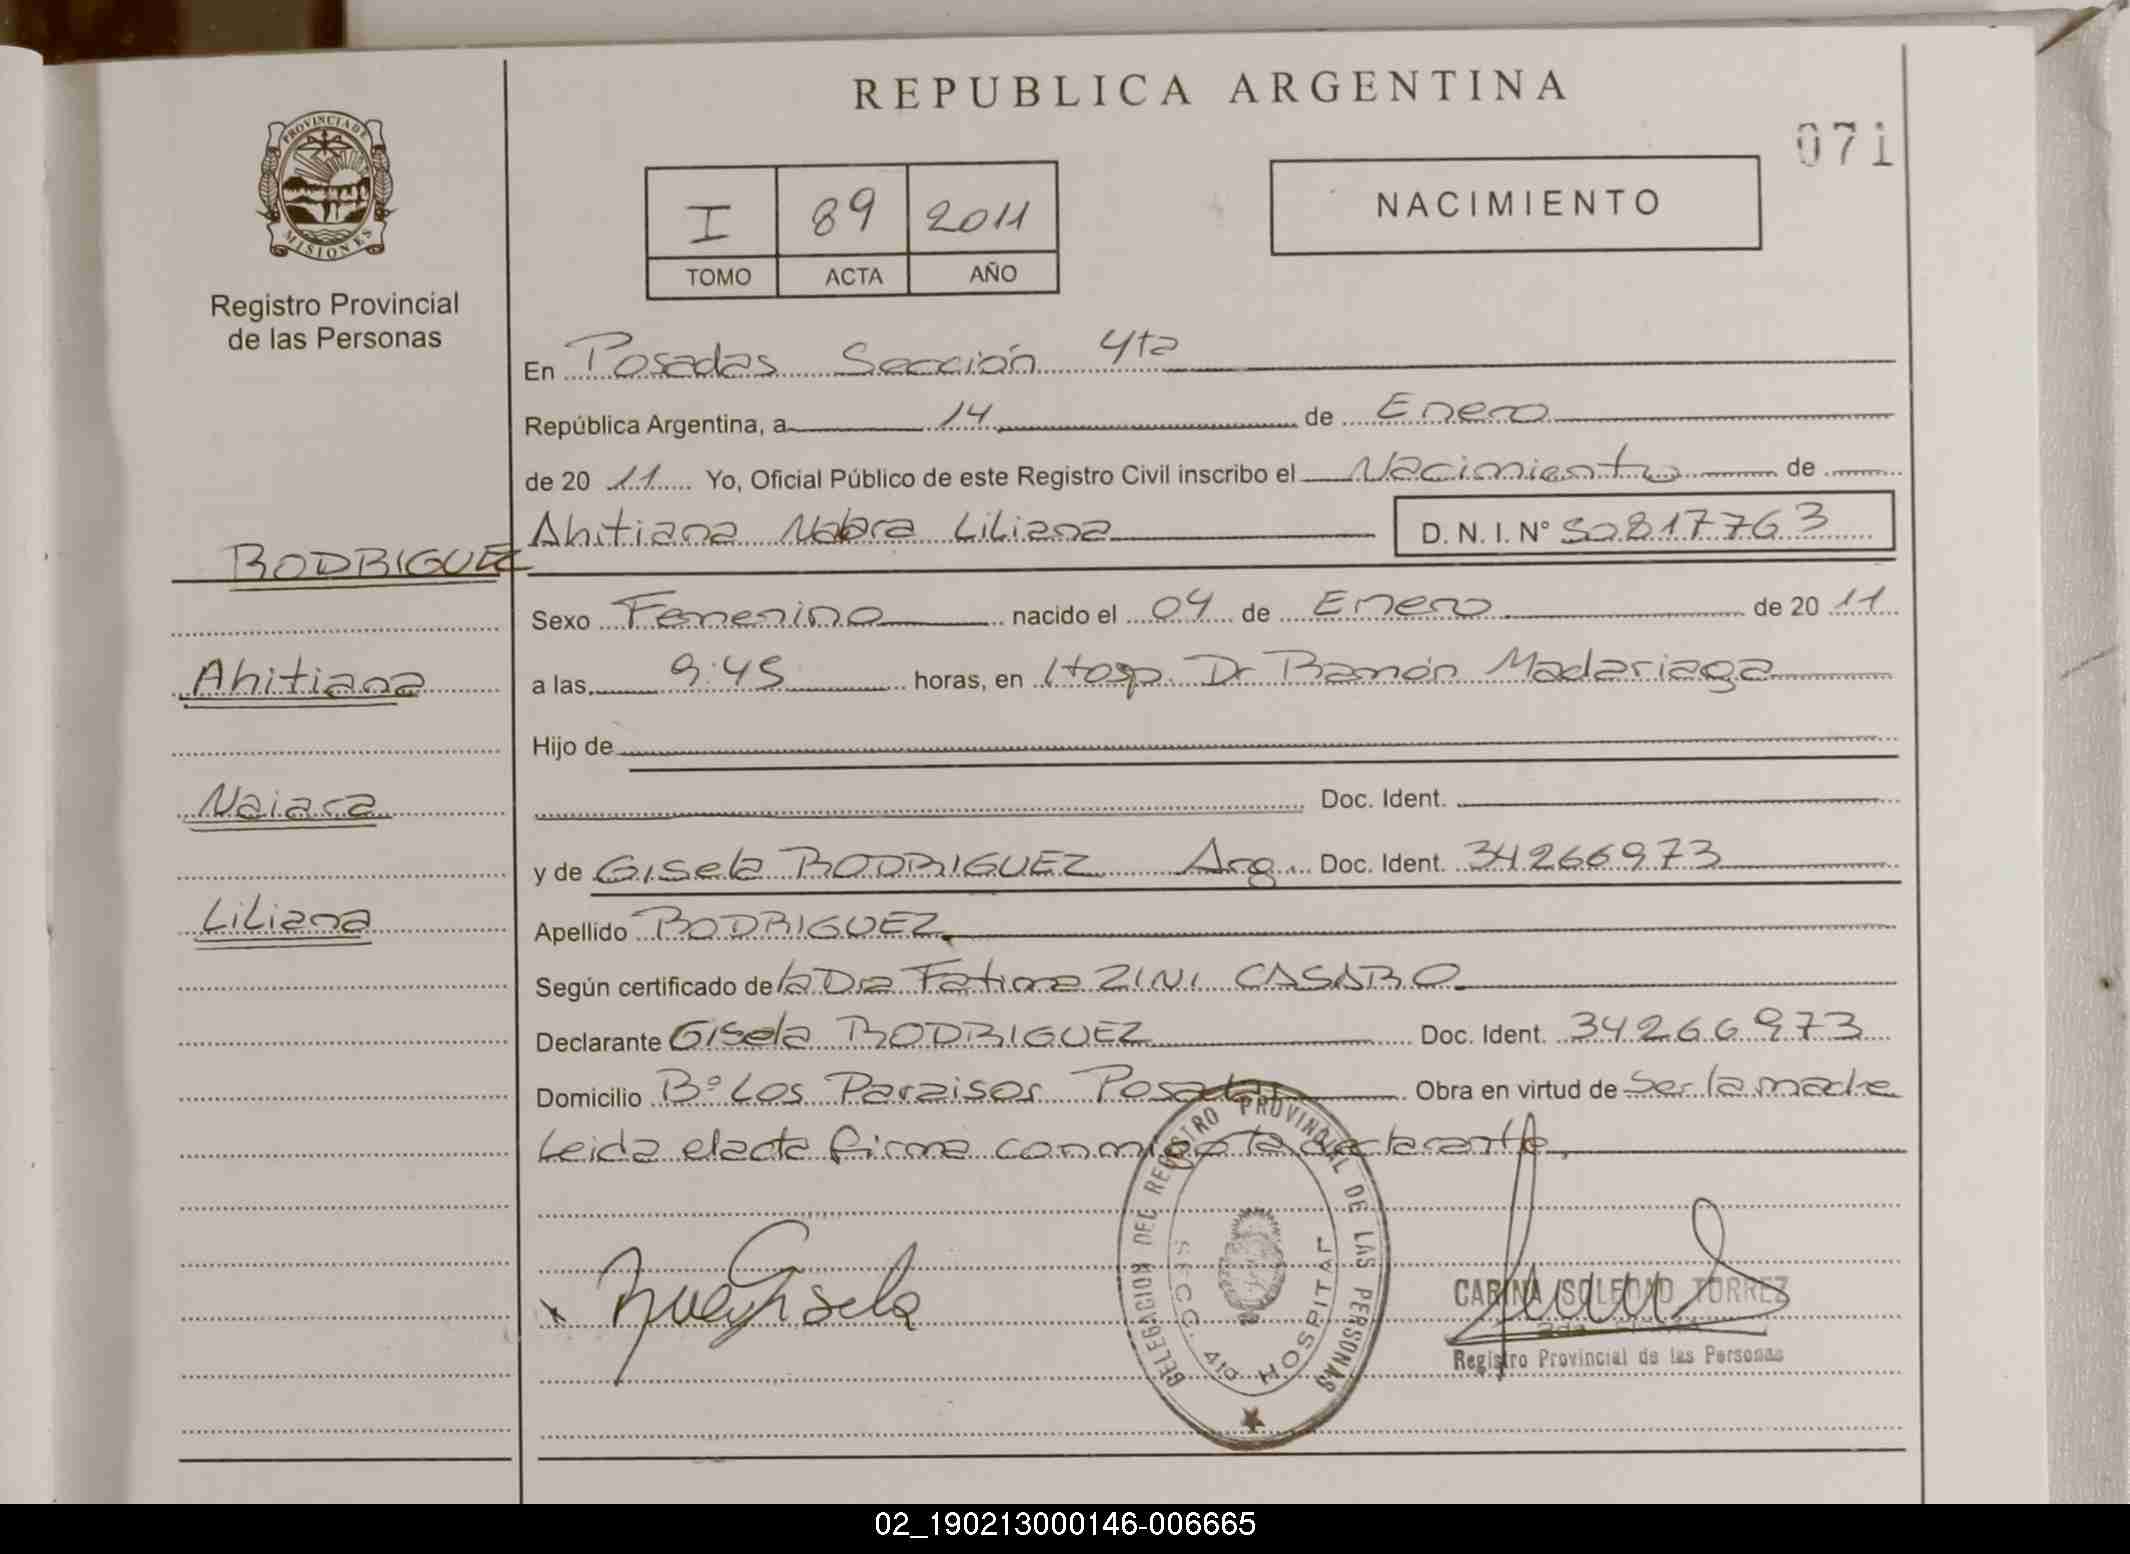 REPUBLICA ARGENTINA
071
PROVINCIA DE
MISIONES
Registro Provincial
de las Personas
I 89 2011
TOMO ACTA AÑO
NACIMIENTO
En Posadas Sección 4ta
República Argentina, a 14 de Enero
de 20 11 Yo, Oficial Público de este Registro Civil inscribo el Nacimiento de
RODRIGUEZ
Ahitiana
Naiara
Liliana
Ahitiana Liliana D. N. I. Nº 50817763
Sexo Femenino nacido el 04 de Enero de 20 11
a las 9:45 horas, en Hosp. Dr Ramón Madariaga
Hijo de
Doc. Ident.
y de Gisela RODRIGUEZ Arg. Doc. Ident. 34266973
Apellido RODRIGUEZ
Según certificado de la Dra Fatima ZINI CASARO
Declarante Gisela RODRIGUEZ Doc. Ident. 34266973
Domicilio Bº Los Paraisos Posadas Obra en virtud de Ser la madre
Leida el acta firma conmigo la declarante
DELEGACION DEL REGISTRO PROVINCIAL DE LAS PERSONAS
SECC. 4ta HOSPITAL
Gisela
CARINA SOLEDAD TORREZ
Registro Provincial de las Personas
02_190213000146-006665